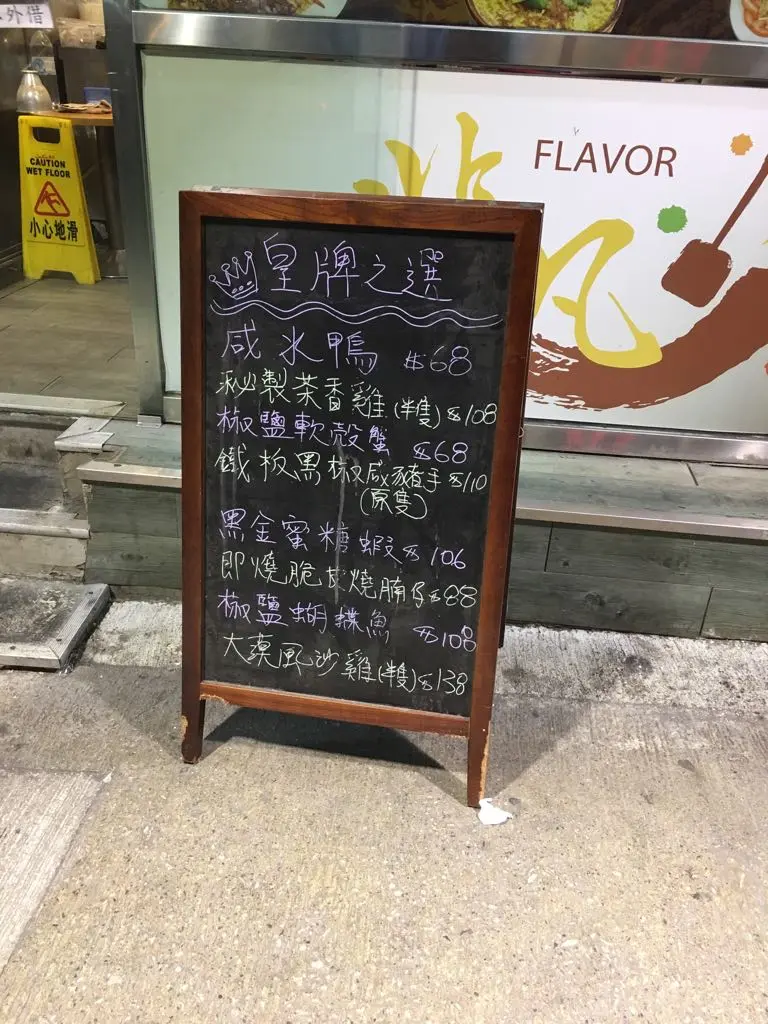 外借
CAUTION
WET FLOOR
小心地滑
FLAVOR
皇牌之選
咸水鴨 $68
秘製茶香雞(半隻) $108
椒鹽軟殼蟹 $68
鐵板黑椒咸豬手 $110
(原隻)
黑金蜜糖蝦 $106
即燒脆皮燒腩仔 $88
椒鹽蝴蝶魚 $108
大漠風沙雞(半隻) $138